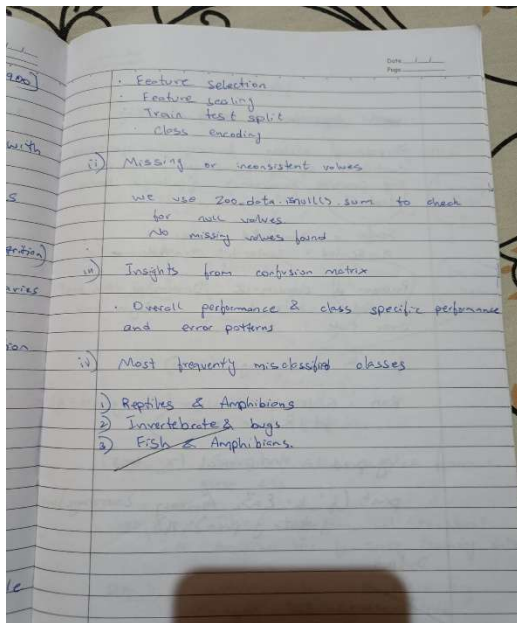 Date / /
Page
900]
with
s
aries
ion
le
• Feature selection
• Feature scaling
• Train test split
• Class encoding
ii) Missing or inconsistent values
we use zoo_data.isnull().sum to check
for null values
No missing values found
iii) Insights from confusion matrix
• Overall performance & class specific performance
and error patterns
iv) Most frequently misclassified classes
1) Reptiles & Amphibians
2) Invertebrate & bugs
3) Fish & Amphibians.